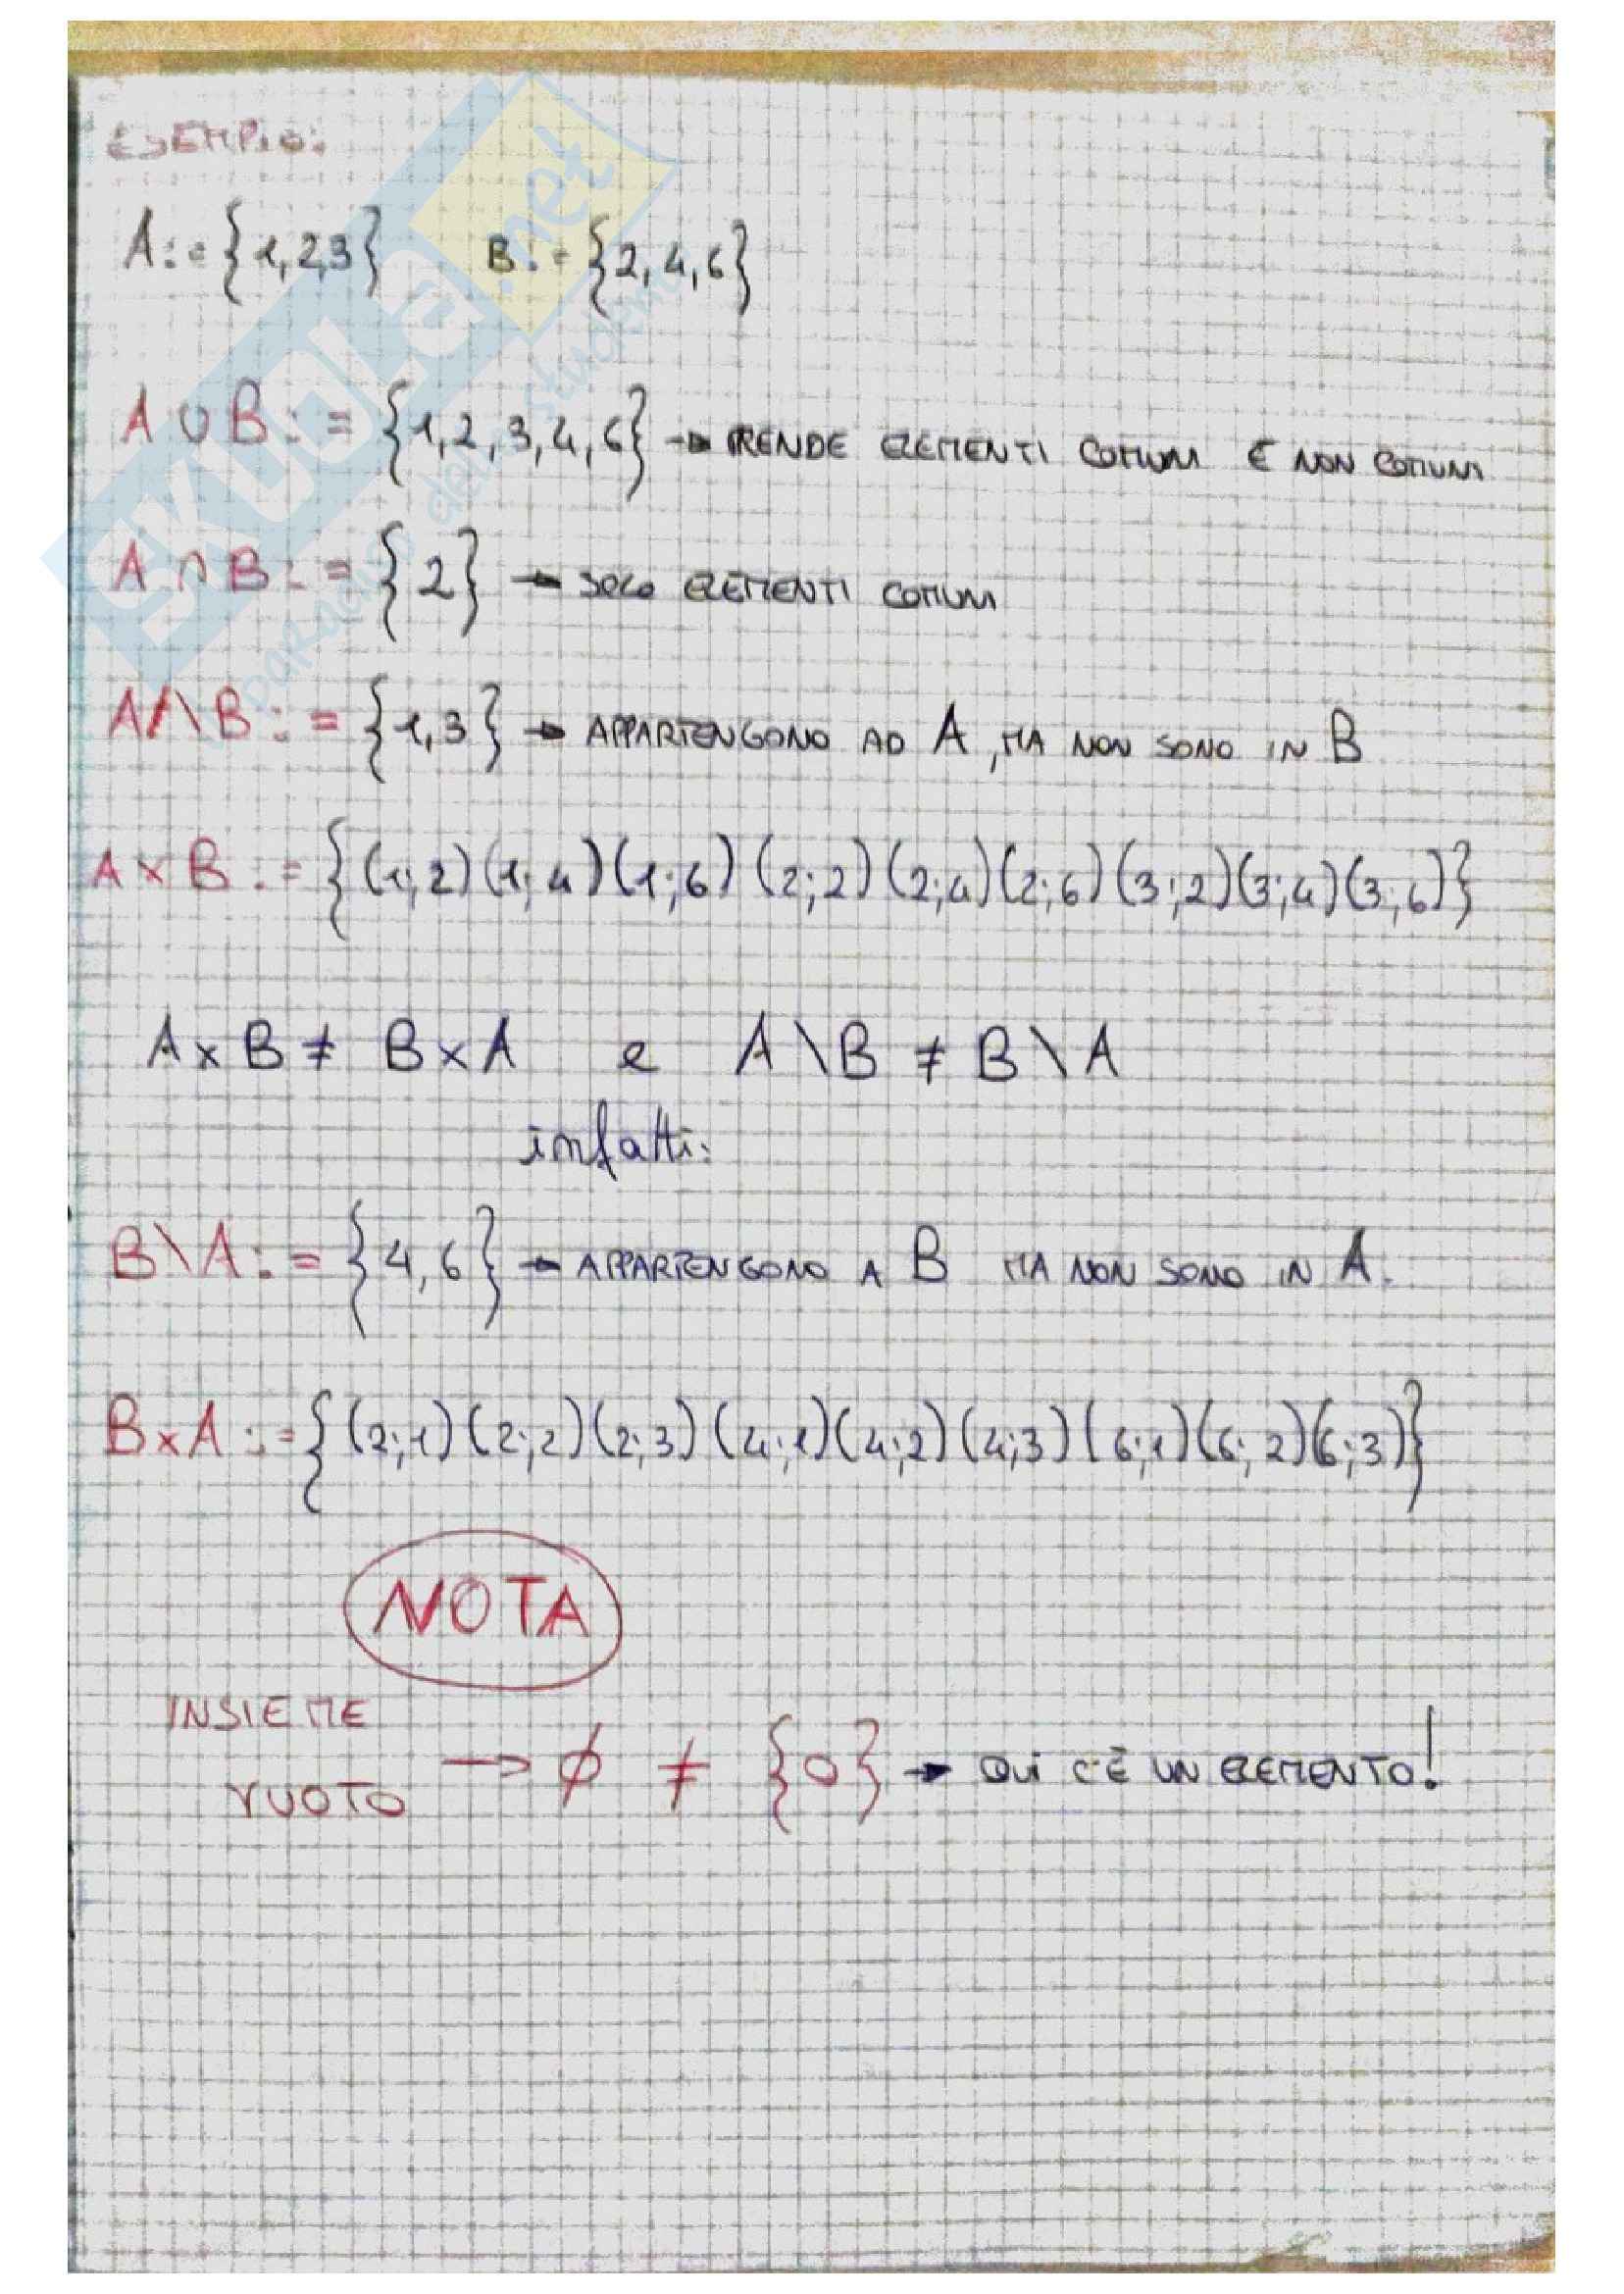 ESEMPIO:
A:={1,2,3} B:={2,4,6}
A∪B:={1,2,3,4,6} → PRENDE ELEMENTI COMUNI E NON COMUNI
A∩B:={2} → SOLO ELEMENTI COMUNI
A\B:={1,3} → APPARTENGONO AD A, MA NON SONO IN B
A×B:={(1;2)(1;4)(1;6)(2;2)(2;4)(2;6)(3;2)(3;4)(3;6)}
A×B≠ B×A e A\B ≠ B\A
infatti:
B\A:={4,6} → APPARTENGONO A B MA NON SONO IN A.
B×A:={(2;1)(2;2)(2;3)(4;1)(4;2)(4;3)(6;1)(6;2)(6;3)}
NOTA
INSIEME
VUOTO → ∅ ≠ {0} → QUI C'È UN ELEMENTO!
SKUOLA.net
paradiso dello studente